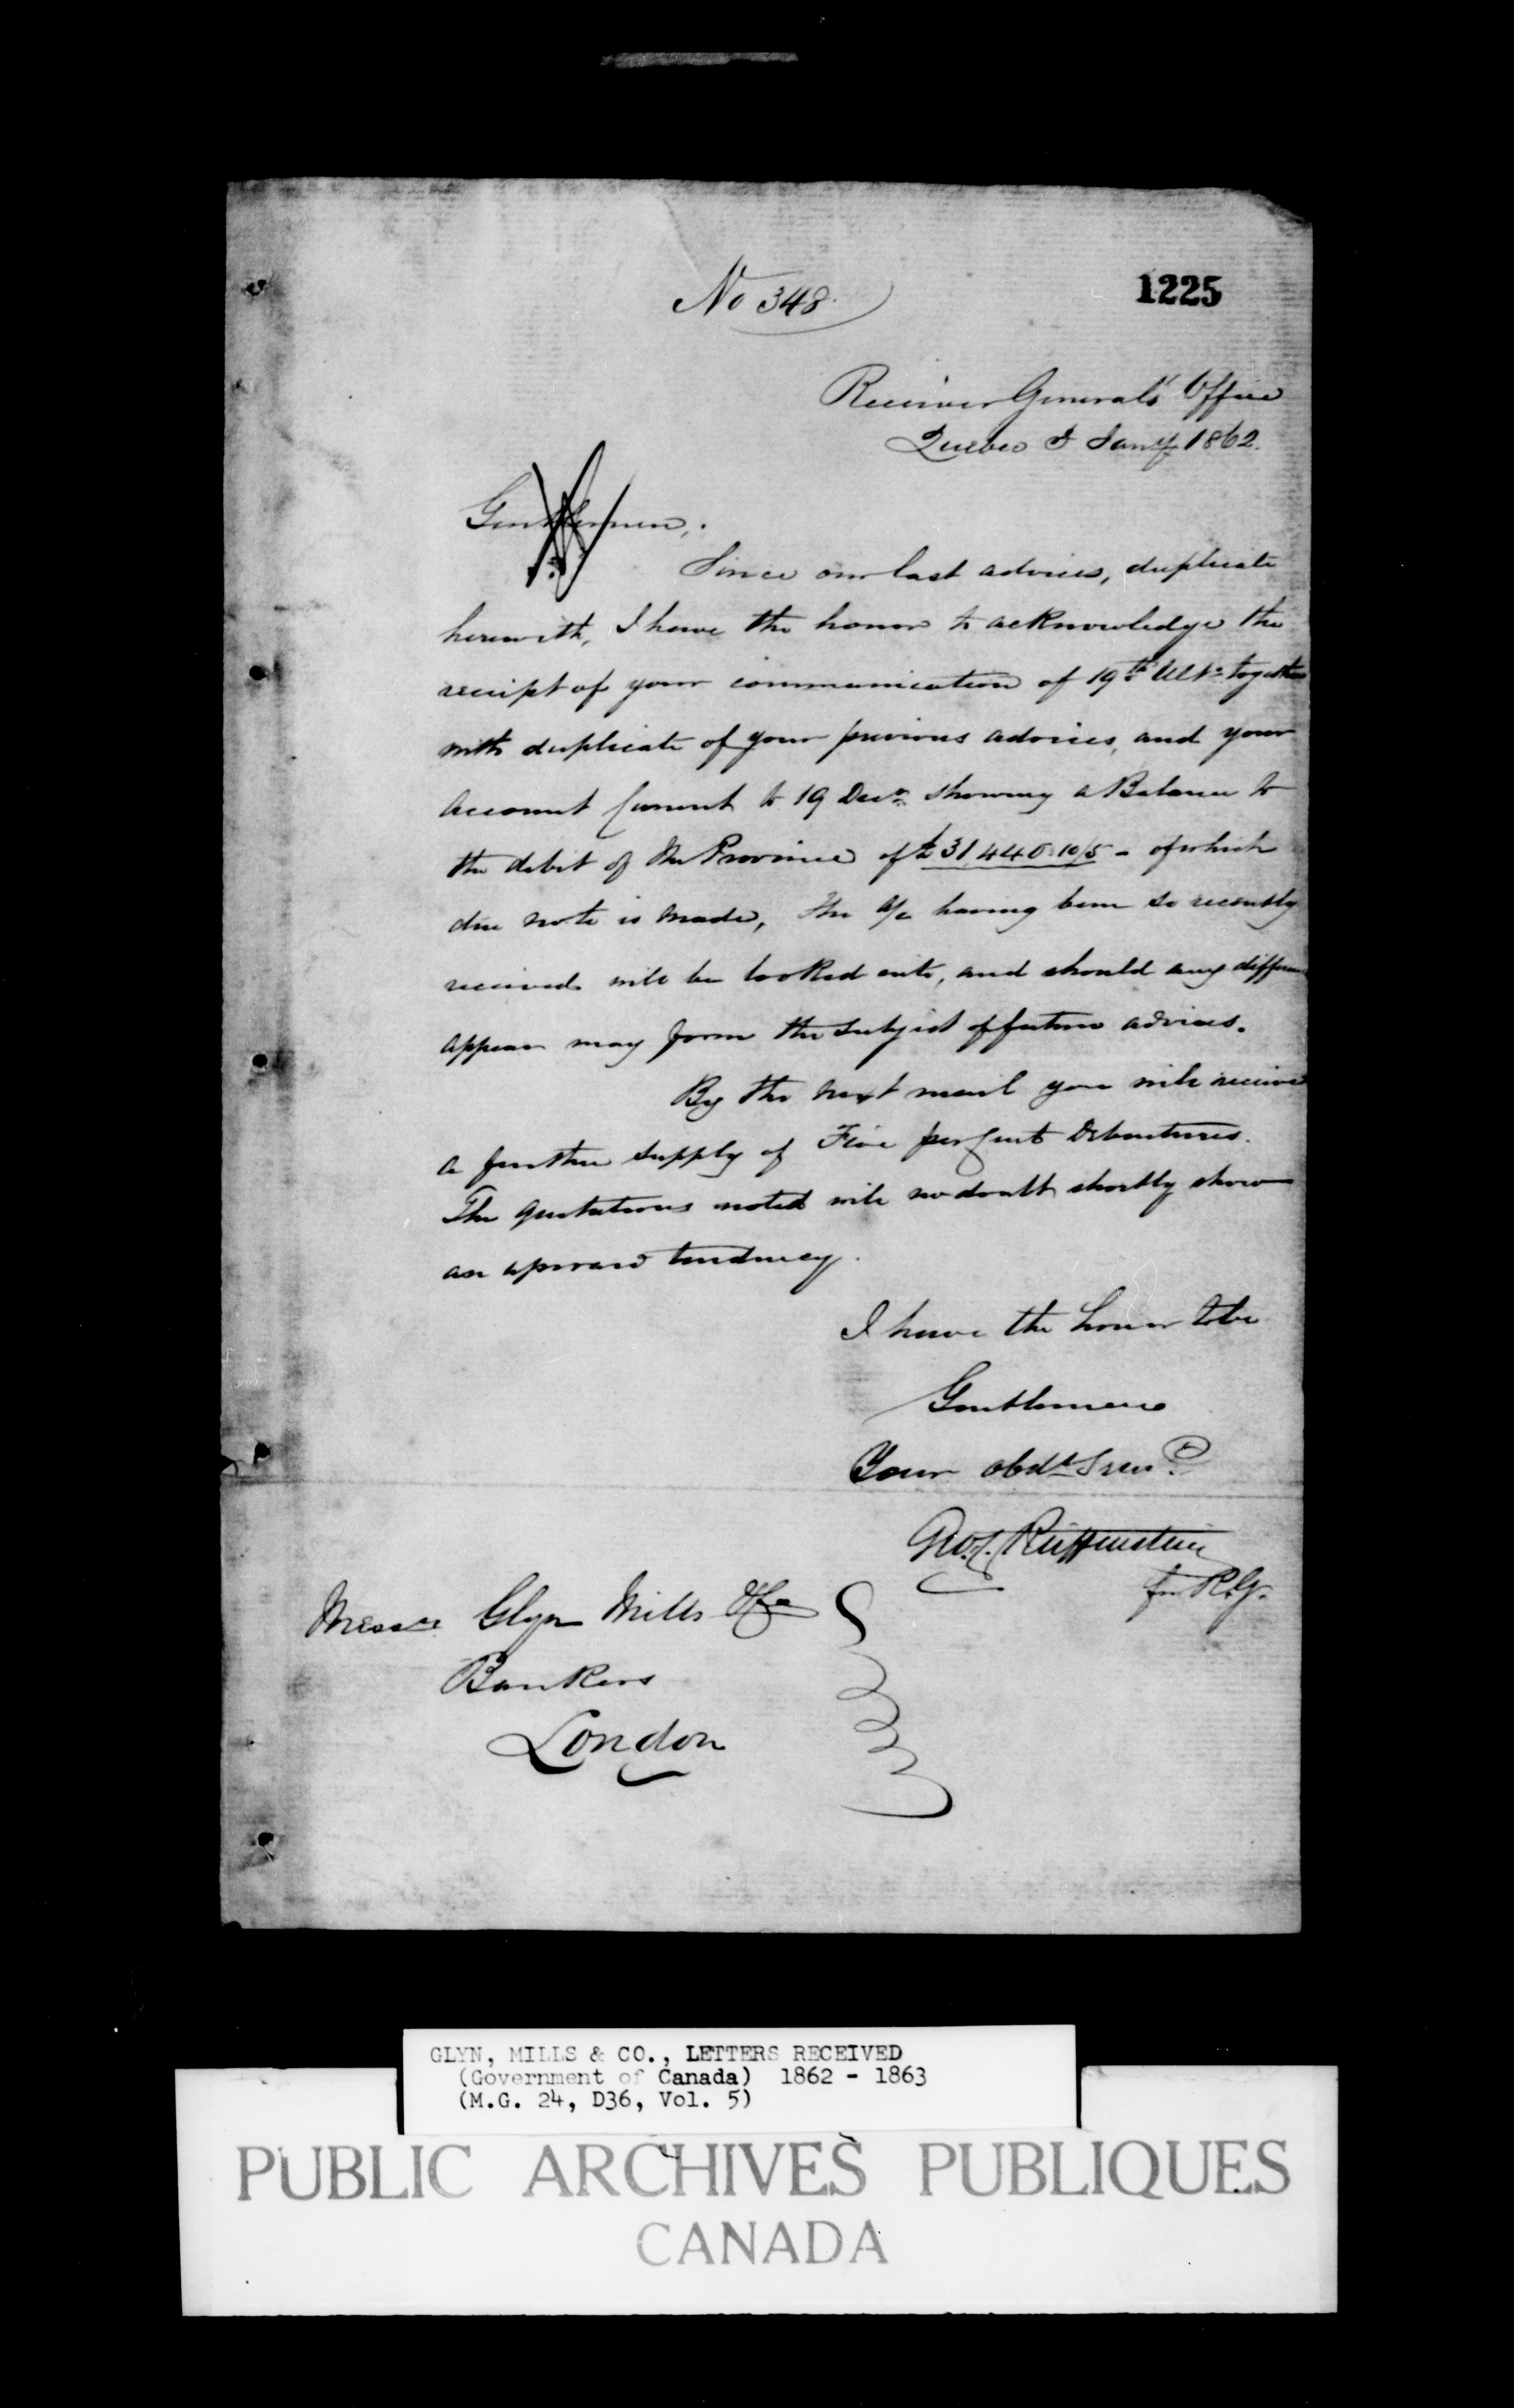 No 348.
1225
Receiver General's Office
Quebec 3 Jany 1862.
Gentlemen,
Since our last advices, duplicate
herewith, I have the honor to acknowledge the
receipt of your communication of 19th Ulto together
with duplicate of your previous advices, and your
Account Current to 19 Decr. showing a Balance to
the debit of the Province of £31,440.10/5 - of which
due note is made, the a/c having been so recently
received will be looked into, and should any difference
appear may form the subject of future advices.
By the next mail you will receive
a further supply of Five per Cent Debentures.
The quotations noted will no doubt shortly show
an upward tendency.
I have the honor to be
Gentlemen
Your obdt Servt
Geo. C. Reiffenstein
for R.G.
Messrs Glyn Mills & Co
Bankers
London
GLYN, MILLS & CO., LETTERS RECEIVED
(Government of Canada) 1862 - 1863
(M.G. 24, D36, Vol. 5)
PUBLIC ARCHIVES PUBLIQUES
CANADA